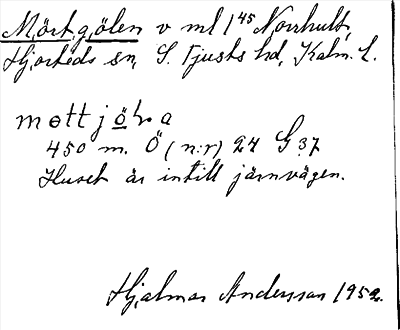 Mörtgölen v ml 1⁴⁵ Norrhult,
Hjorteds sn, S. Tjusts hd, Kalm. L.
mettjöla
450 m. Ö (n:r) 24 G 37
Huset är intill järnvägen.
Hjalmar Andersson 1952.